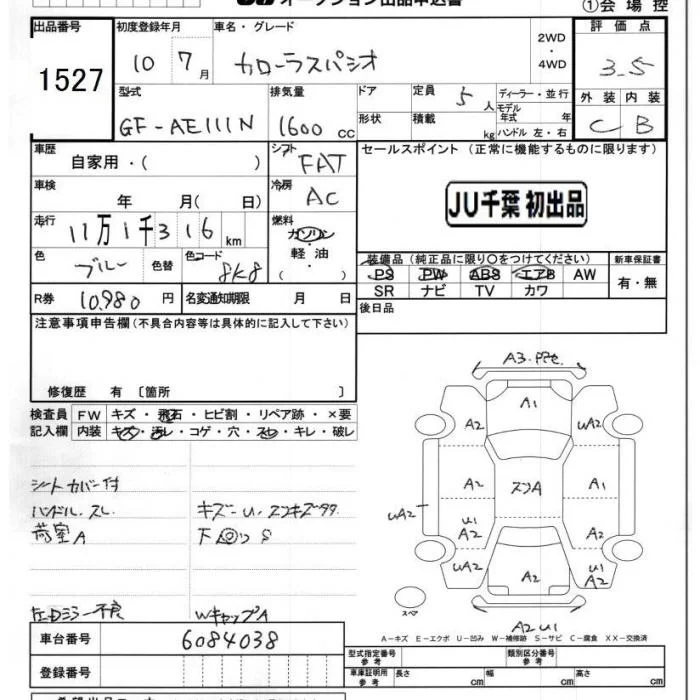 オークション出品申込書
①会場控
出品番号 初度登録年月 車名・グレード 評価点
1527 10 7月 カローラスパシオ 2WD ・ 4WD 3.5
型式 排気量 ドア 定員 5人 ディーラー・並行 外装 内装
GF-AE111N 1600cc 形状 積載 kg モデル年式 年 ハンドル 左・右 C B
車歴 自家用・( ) シフト FAT セールスポイント (正常に機能するものに限ります)
車検 年 月( 日) 冷房 AC
JU千葉 初出品
走行 11万1千316km 燃料 ガソリン・軽油・( )
色 ブルー 色替 色コード 8K8 装備品 (純正品に限り○をつけてください) 新車保証書
PS PW ABS エアB AW 有・無
R券 10,980円 名変通知期限 月 日 SR ナビ TV カワ
注意事項申告欄 (不具合内容等は具体的に記入して下さい) 後日品
修復歴 有 〔箇所 〕
検査員 FW キズ・飛石・ヒビ割・リペア跡・×要
記入欄 内装 キズ・汚レ・コゲ・穴・スレ・キレ・破レ
シートカバー付
ハンドル・スレ キズ-U・スンキズタタ
荷室A 下回り S
左ドアミラー不良 WキャップA
A3
A1
A2 uA2
A2 スンA A1
uA2 u1 A2 A2
uA2 A2 u1 A2
スペア
A2 u1
A-キズ E-エクボ U-凹み W-補修跡 S-サビ C-腐食 XX-交換済
車台番号 6084038 型式指定番号 参考 類別区分番号 参考
登録番号 車庫証明用 参考 長さ cm 幅 cm 高さ cm